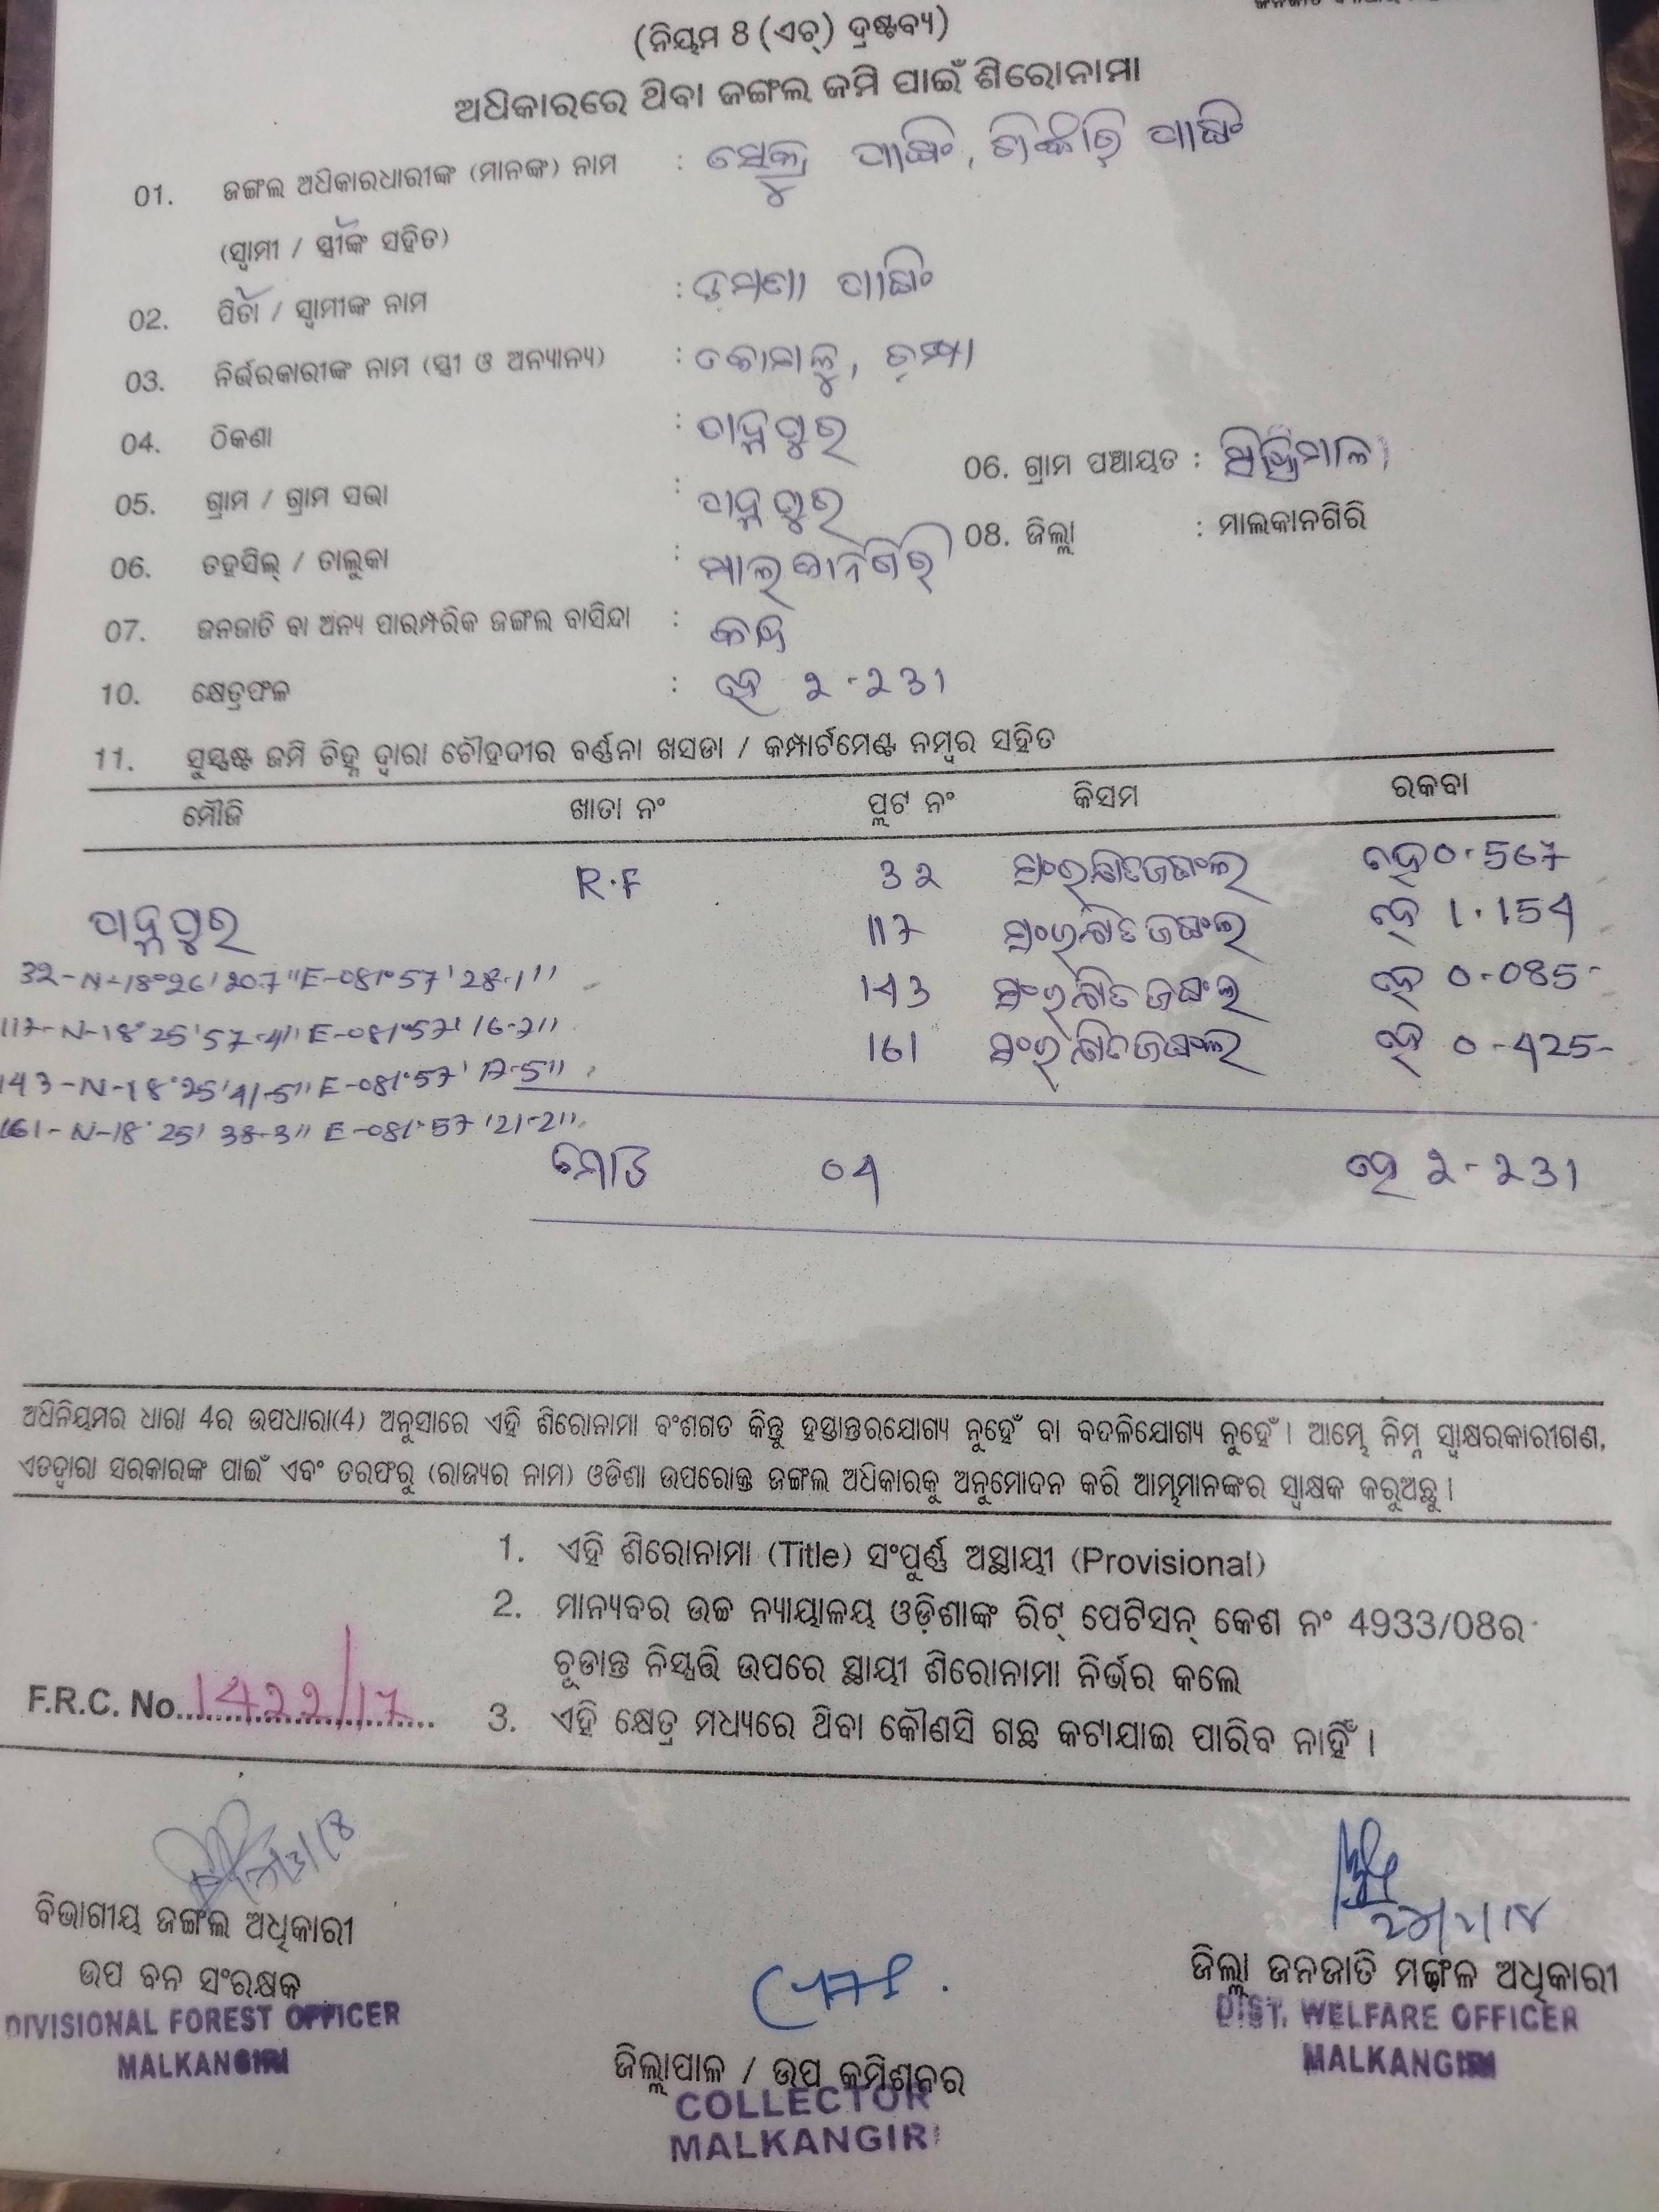 (ନିୟମ ୫ (ଏଚ୍) ଦ୍ରଷ୍ଟବ୍ୟ)
ଅଧିକାରରେ ଥିବା ଜଙ୍ଗଲ ଜମି ପାଇଁ ଶିରୋନାମା
01. ଜଙ୍ଗଲ ଅଧିକାରଧାରୀଙ୍କ (ମାନଙ୍କ) ନାମ :
(ସ୍ୱାମୀ / ସ୍ତ୍ରୀଙ୍କ ସହିତ)
02. ପିତା / ସ୍ୱାମୀଙ୍କ ନାମ :
03. ନିର୍ଭରକାରୀଙ୍କ ନାମ (ସ୍ତ୍ରୀ ଓ ଅନ୍ୟାନ୍ୟ) :
04. ଠିକଣା : ପାଦ୍ମପୁର
05. ଗ୍ରାମ / ଗ୍ରାମ ସଭା : ପାଦ୍ମପୁର 06. ଗ୍ରାମ ପଞ୍ଚାୟତ :
06. ତହସିଲ୍ / ତାଲୁକା : ମାଲକାନଗିରି 08. ଜିଲ୍ଲା : ମାଲକାନଗିରି
07. ଜନଜାତି ବା ଅନ୍ୟ ପାରମ୍ପରିକ ଜଙ୍ଗଲ ବାସିନ୍ଦା :
10. କ୍ଷେତ୍ରଫଳ : ହେ 2-231
11. ସୁସ୍ପଷ୍ଟ ଜମି ଚିହ୍ନ ଦ୍ୱାରା ଚୌହଦୀର ବର୍ଣ୍ଣନା ଖସଡା / କମ୍ପାର୍ଟମେଣ୍ଟ ନମ୍ବର ସହିତ
ମୌଜି ଖାତା ନଂ ପ୍ଲଟ ନଂ କିସମ ରକବା
R.F 32 ସଂରକ୍ଷିତ ଜଙ୍ଗଲ ହେ 0.567
ପାଦ୍ମପୁର 117 ସଂରକ୍ଷିତ ଜଙ୍ଗଲ ହେ 1.154
32-N-18°26'20.7"E-081°57'28.1" 143 ସଂରକ୍ଷିତ ଜଙ୍ଗଲ ହେ 0-085-
117-N-18°25'57-4" E-081°57' 16-2" 161 ସଂରକ୍ଷିତ ଜଙ୍ଗଲ ହେ 0-425-
143-N-18°25'41-5" E-081°57'
161-N-18°25' 38-3" E-081°57'21-2"
ମୋଟ 04 ହେ 2-231
ଅଧିନିୟମର ଧାରା 4ର ଉପଧାରା(4) ଅନୁସାରେ ଏହି ଶିରୋନାମା ବଂଶଗତ କିନ୍ତୁ ହସ୍ତାନ୍ତରଯୋଗ୍ୟ ନୁହେଁ ବା ବଦଳିଯୋଗ୍ୟ ନୁହେଁ। ଆମ୍ଭେ ନିମ୍ନ ସ୍ୱାକ୍ଷରକାରୀଗଣ,
ଏତଦ୍ୱାରା ସରକାରଙ୍କ ପାଇଁ ଏବଂ ତରଫରୁ (ରାଜ୍ୟର ନାମ) ଓଡିଶା ଉପରୋକ୍ତ ଜଙ୍ଗଲ ଅଧିକାରକୁ ଅନୁମୋଦନ କରି ଆମ୍ଭମାନଙ୍କର ସ୍ୱାକ୍ଷକ କରୁଅଛୁ।
1. ଏହି ଶିରୋନାମା (Title) ସଂପୂର୍ଣ୍ଣ ଅସ୍ଥାୟୀ (Provisional)
2. ମାନ୍ୟବର ଉଚ୍ଚ ନ୍ୟାୟାଳୟ ଓଡ଼ିଶାଙ୍କ ରିଟ୍ ପେଟିସନ୍ କେଶ ନଂ 4933/08ର
ଚୂଡାନ୍ତ ନିସ୍ପତ୍ତି ଉପରେ ସ୍ଥାୟୀ ଶିରୋନାମା ନିର୍ଭର କଲେ
F.R.C. No. 1422/17
3. ଏହି କ୍ଷେତ୍ର ମଧ୍ୟରେ ଥିବା କୌଣସି ଗଛ କଟାଯାଇ ପାରିବ ନାହିଁ।
ବିଭାଗୀୟ ଜଙ୍ଗଲ ଅଧିକାରୀ
ଉପ ବନ ସଂରକ୍ଷକ
DIVISIONAL FOREST OFFICER
MALKANGIRI
ଜିଲ୍ଲାପାଳ / ଉପ କମିଶନର
COLLECTOR
MALKANGIRI
ଜିଲ୍ଲା ଜନଜାତି ମଙ୍ଗଳ ଅଧିକାରୀ
DIST. WELFARE OFFICER
MALKANGIRI